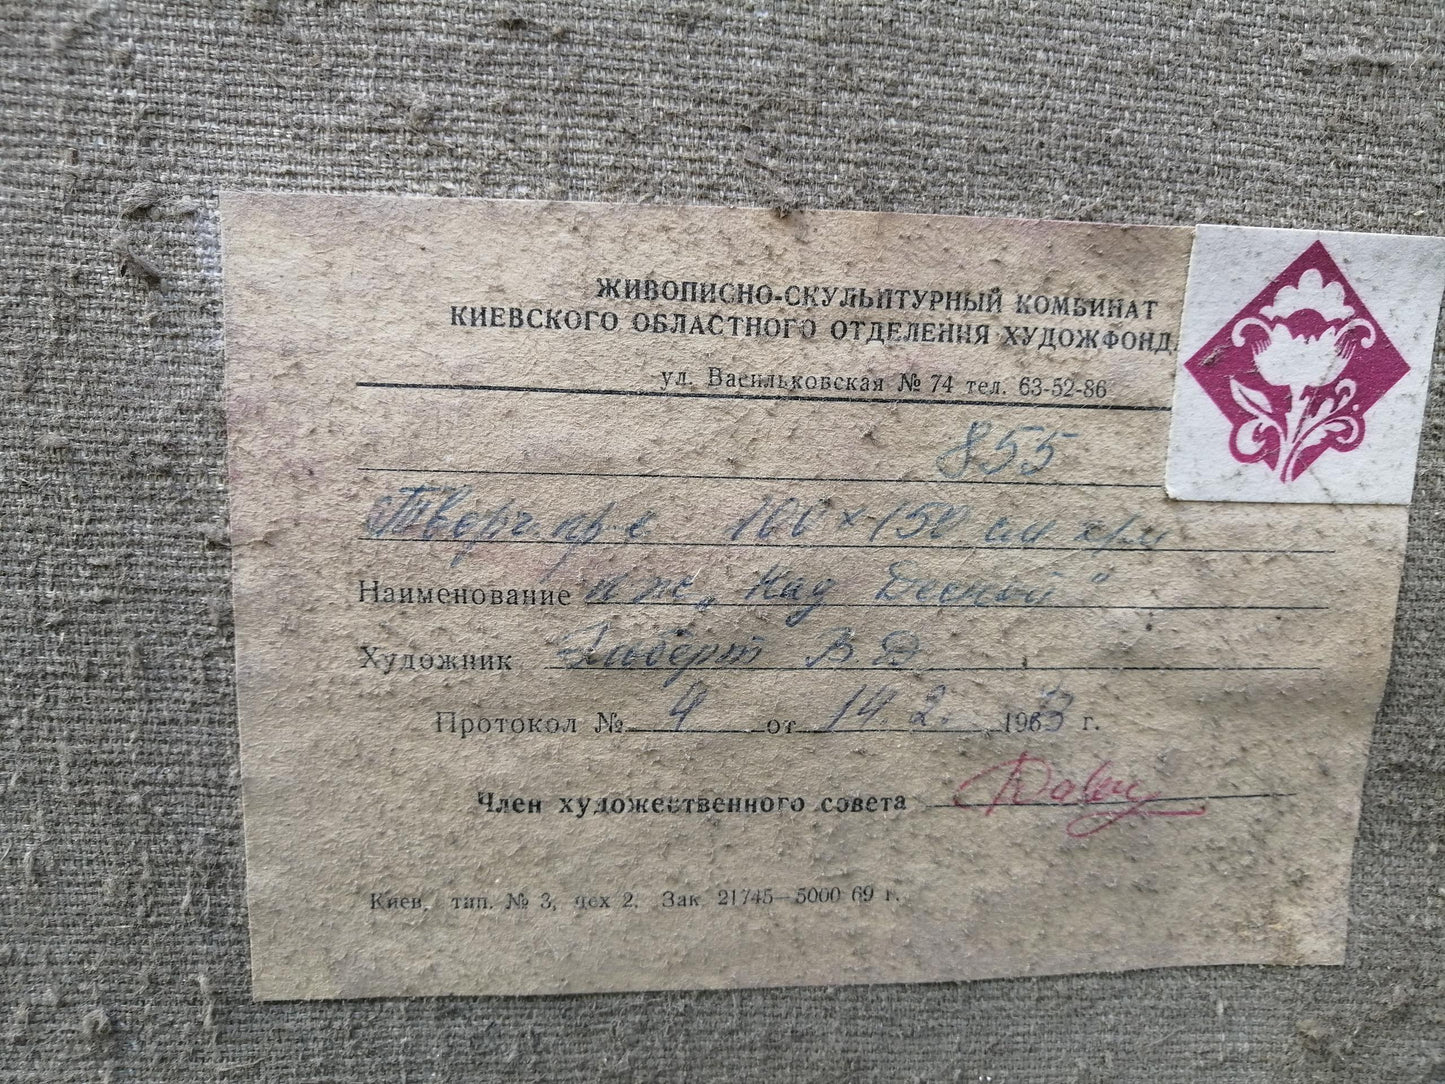 ЖИВОПИСНО-СКУЛЬПТУРНЫЙ КОМБИНАТ
КИЕВСКОГО ОБЛАСТНОГО ОТДЕЛЕНИЯ ХУДОЖФОНД
ул. Васильковская № 74 тел. 63-52-86
855
Творч. пр-е 100 х 150 см хм
Наименование „Над Десной"
Художник В Д
Протокол № 4 от 14. 2. 196 г.
Член художественного совета
Киев, тип. № 3, цех 2, Зак 21745—5000 69 г.